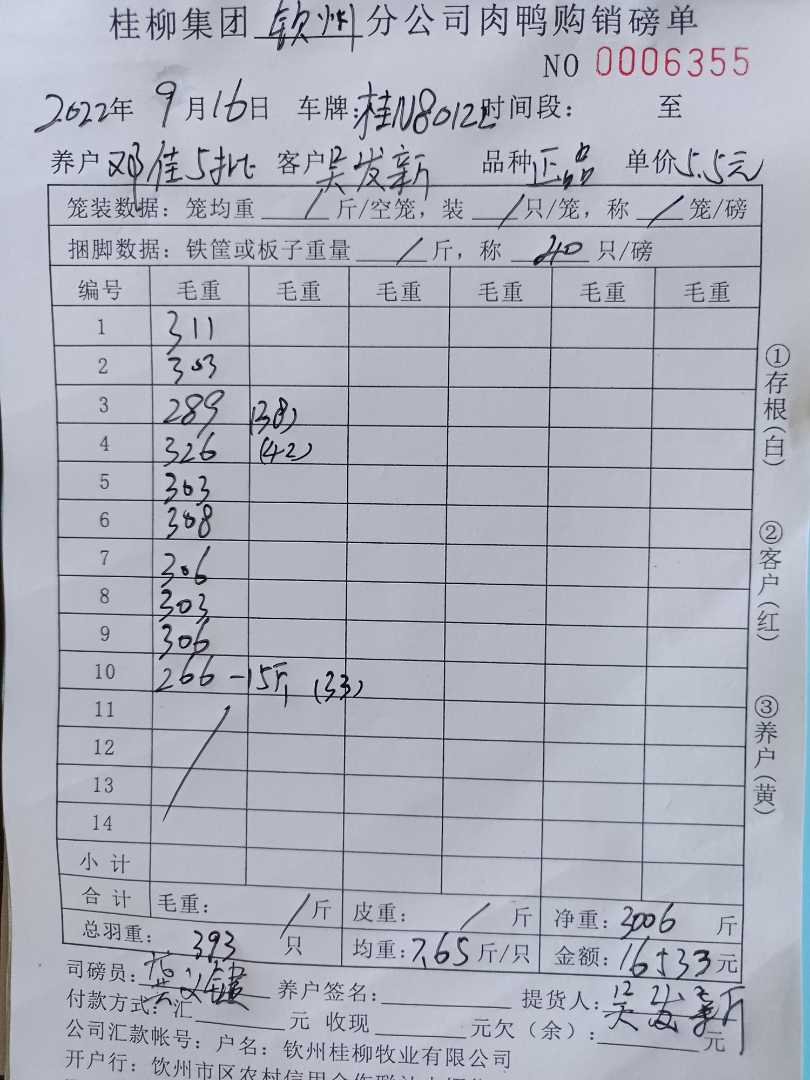 桂柳集团 钦州 分公司肉鸭购销磅单
NO 0006355
2022年 9月16日 车牌:桂N8012L 时间段: 至
养户 邓佳5批 客户吴发新 品种正品 单价5.5元
笼装数据: 笼均重 / 斤/空笼, 装 / 只/笼, 称 / 笼/磅
捆脚数据: 铁筐或板子重量 / 斤, 称 40 只/磅
编号 毛重 毛重 毛重 毛重 毛重 毛重
1 311
2 303
3 289 (38)
4 326 (42)
5 303
6 308
7 306
8 303
9 306
10 266 -15斤 (33)
11
12
13
14
小计
合计 毛重: / 斤 皮重: / 斤 净重: 3006 斤
总羽重: 393 只 均重: 7.65 斤/只 金额: 16533 元
司磅员: 养户签名: 提货人: 吴发新
付款方式: 汇 元 收现 元欠(余): 元
公司汇款帐号: 户名: 钦州桂柳牧业有限公司
开户行: 钦州市区农村信用合作联社
①存根(白)
②客户(红)
③养户(黄)